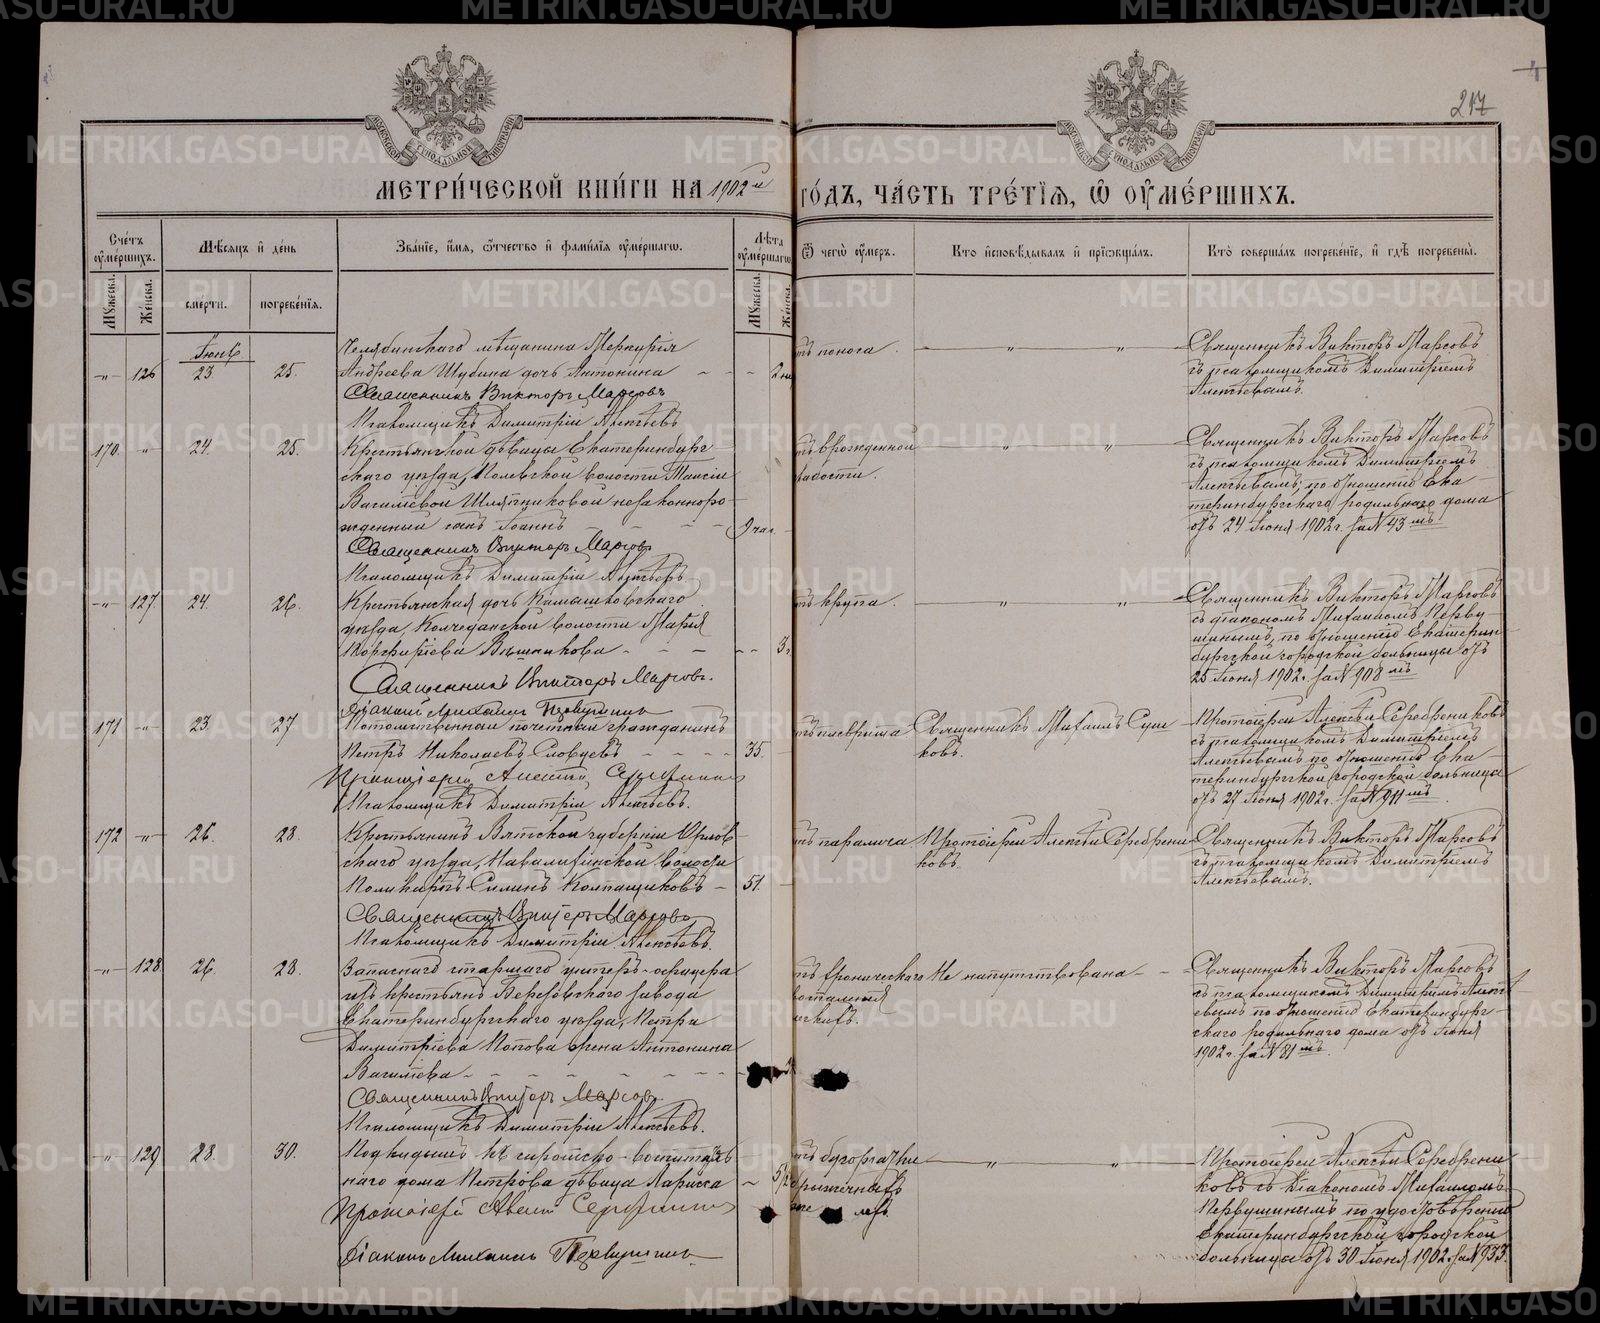 217
МЕТРИ́ЧЕСКОЙ КНИ́ГИ НА 1902 й ГО́ДЪ, ЧА́СТЬ ТРЕ́ТЇѦ, Ѡ ОУ҆МЕ́РШИХЪ.
Сче́тъ оу҆ме́ршихъ.
Мѣ́сѧцъ и҆ де́нь
Зва́нїе, и҆́мѧ, ѻ҆́тчество и҆ фами́лїѧ оу҆ме́ршагѡ.
Лѣ́та оу҆ме́ршагѡ
Ѿ чегѡ̀ оу҆́меръ.
Кто̀ и҆сповѣ́дывалъ и҆ прїѡбща́лъ.
Кто̀ соверша́лъ погребе́нїе, и҆ гдѣ̀ погребены̀.
Му́жеска.
Же́нска.
сме́рти.
погребе́нїѧ.
Му́жеска.
Же́нска.
Іюнь
-"- 126 23. 25.
Челябинскаго мѣщанина Меркурія
Андреева Шубина дочь Антонина
Священникъ Викторъ Марсовъ
Псаломщикъ Димитрій Алексѣевъ
отъ поноса
Священникъ Викторъ Марсовъ
съ псаломщикомъ Димитріемъ
Алексѣевымъ.
170. -"- 24. 25.
Крестьянской дѣвицы Екатеринбург-
скаго уѣзда, Полевской волости Таисіи
Васильевой Шляпниковой незаконноро-
жденный сынъ Іоаннъ
9 час.
Священникъ Викторъ Марсовъ
Псаломщикъ Димитрій Алексѣевъ
отъ врожденной
слабости.
Священникъ Викторъ Марсовъ
съ псаломщикомъ Димитріемъ
Алексѣевымъ, по отношенію Ека-
теринбургскаго родильнаго дома
отъ 24 Іюня 1902 г. за № 43 мъ
-"- 127. 24. 26.
Крестьянская дочь Камышловскаго
уѣзда, Колчеданской волости Марія
Порфиріева
Священникъ Викторъ Марсовъ.
Діаконъ Михаилъ Первушинъ
отъ крупа.
Священникъ Викторъ Марсовъ
съ діакономъ Михаиломъ Перву-
шинымъ, по отношенію Екатерин-
бургской городской больницы отъ
25 Іюня 1902 г. за № 908 мъ
171 -"- 23 27
Потомственный почетный гражданинъ
Петръ Николаевъ Словцовъ
35.
Протоіерей Алексѣй Серебрениковъ
Псаломщикъ Димитрій Алексѣевъ.
отъ плеврита
Священникъ Михаилъ Суш-
ковъ.
Протоіерей Алексѣй Серебрениковъ
съ псаломщикомъ Димитріемъ
Алексѣевымъ по отношенію Ека-
теринбургской городской больницы
отъ 27 Іюня 1902 г. за № 911 мъ
172 -"- 26. 28.
Крестьянинъ Вятской губерніи Орлов-
скаго уѣзда, волости
Поликарпъ Силинъ Колпащиковъ
51.
Священникъ Викторъ Марсовъ
Псаломщикъ Димитрій Алексѣевъ.
отъ паралича
Протоіерей Алексѣй Серебрени-
ковъ.
Священникъ Викторъ Марсовъ
съ псаломщикомъ Димитріемъ
Алексѣевымъ.
-"- 128. 26. 28.
Запаснаго старшаго унтеръ-офицера
изъ крестьянъ Березовскаго завода
Екатеринбургскаго уѣзда, Петра
Димитріева Попова жена Антонина
Васильева
Священникъ Викторъ Марсовъ
Псаломщикъ Димитрій Алексѣевъ.
отъ хроническаго
воспаленія
почекъ.
Не напутствована
Священникъ Викторъ Марсовъ
съ псаломщикомъ Димитріемъ Алексѣ-
евымъ по отношенію Екатеринбург-
скаго родильнаго дома отъ Іюня
1902 г. за № 81 мъ
-"- 129 28. 30.
Подкидышъ сиротско-воспитатель-
наго дома Петрова дѣвица Лариса
Протоіерей Алексѣй Серебрениковъ
Діаконъ Михаилъ Первушинъ
отъ бугорчатки
брыжечныхъ
желез
Протоіерей Алексѣй Серебрени-
ковъ съ Діакономъ Михаиломъ
Первушинымъ по удостовѣренію
Екатеринбургской городской
больницы отъ 30 Іюня 1902 г. за № 933.
METRIKI.GASO-URAL.RU